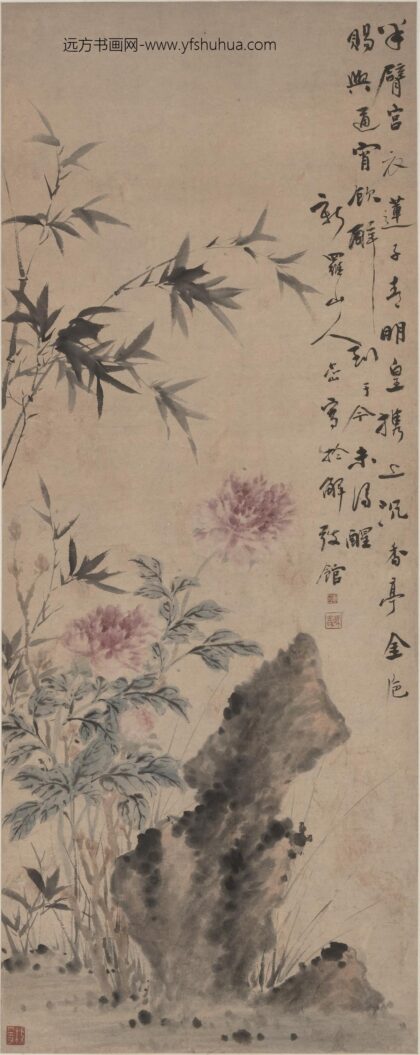 远方书画网-www.yfshuhua.com
半臂宮衣蓮子青明皇攜上沉香亭金卮
賜與通宵飲醉到于今未得醒
新羅山人嵒寫於解弢館